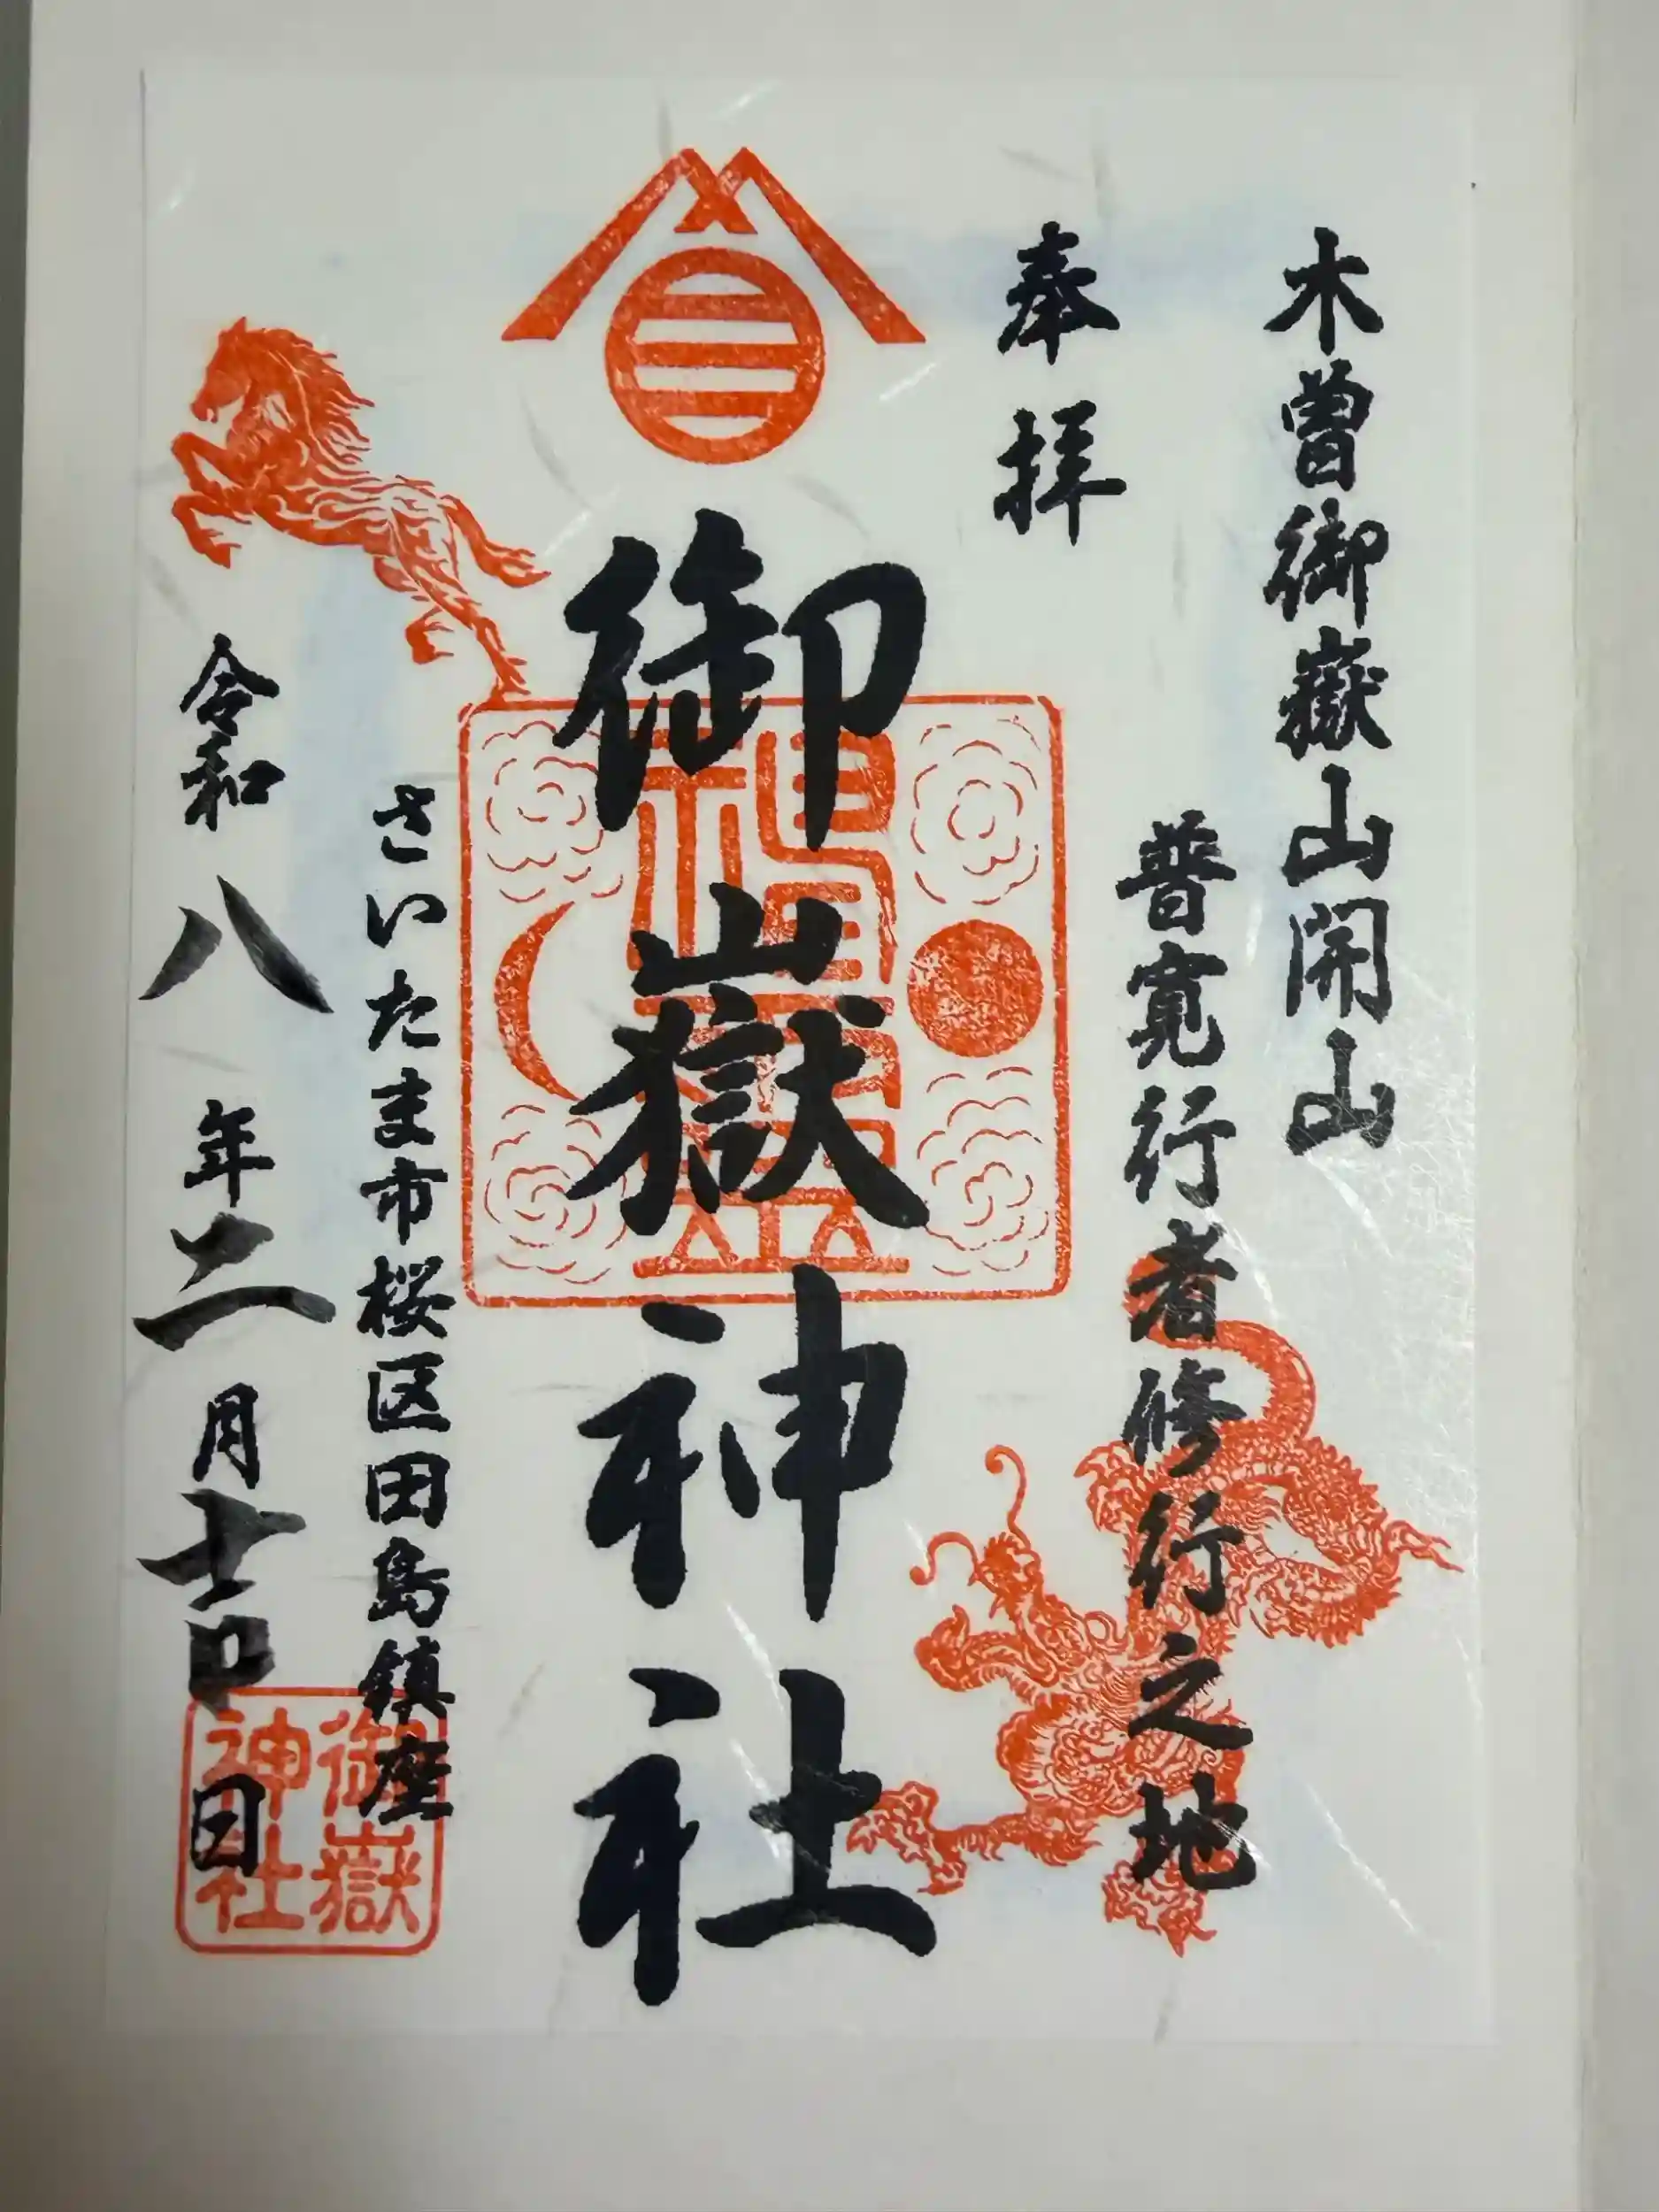 木曽御嶽山開山
普寛行者修行之地
奉拝
御嶽神社
さいたま市桜区田島鎮座
令和八年二月吉日
御嶽
神社